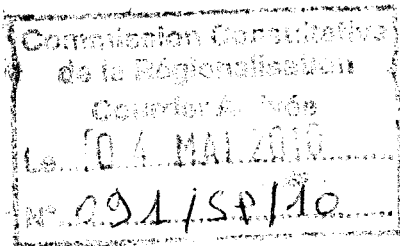 Commission Consultative
de la Régionalisation
Courrier Arrivée
Le 04 MAI 2010
N° 091/SP/10